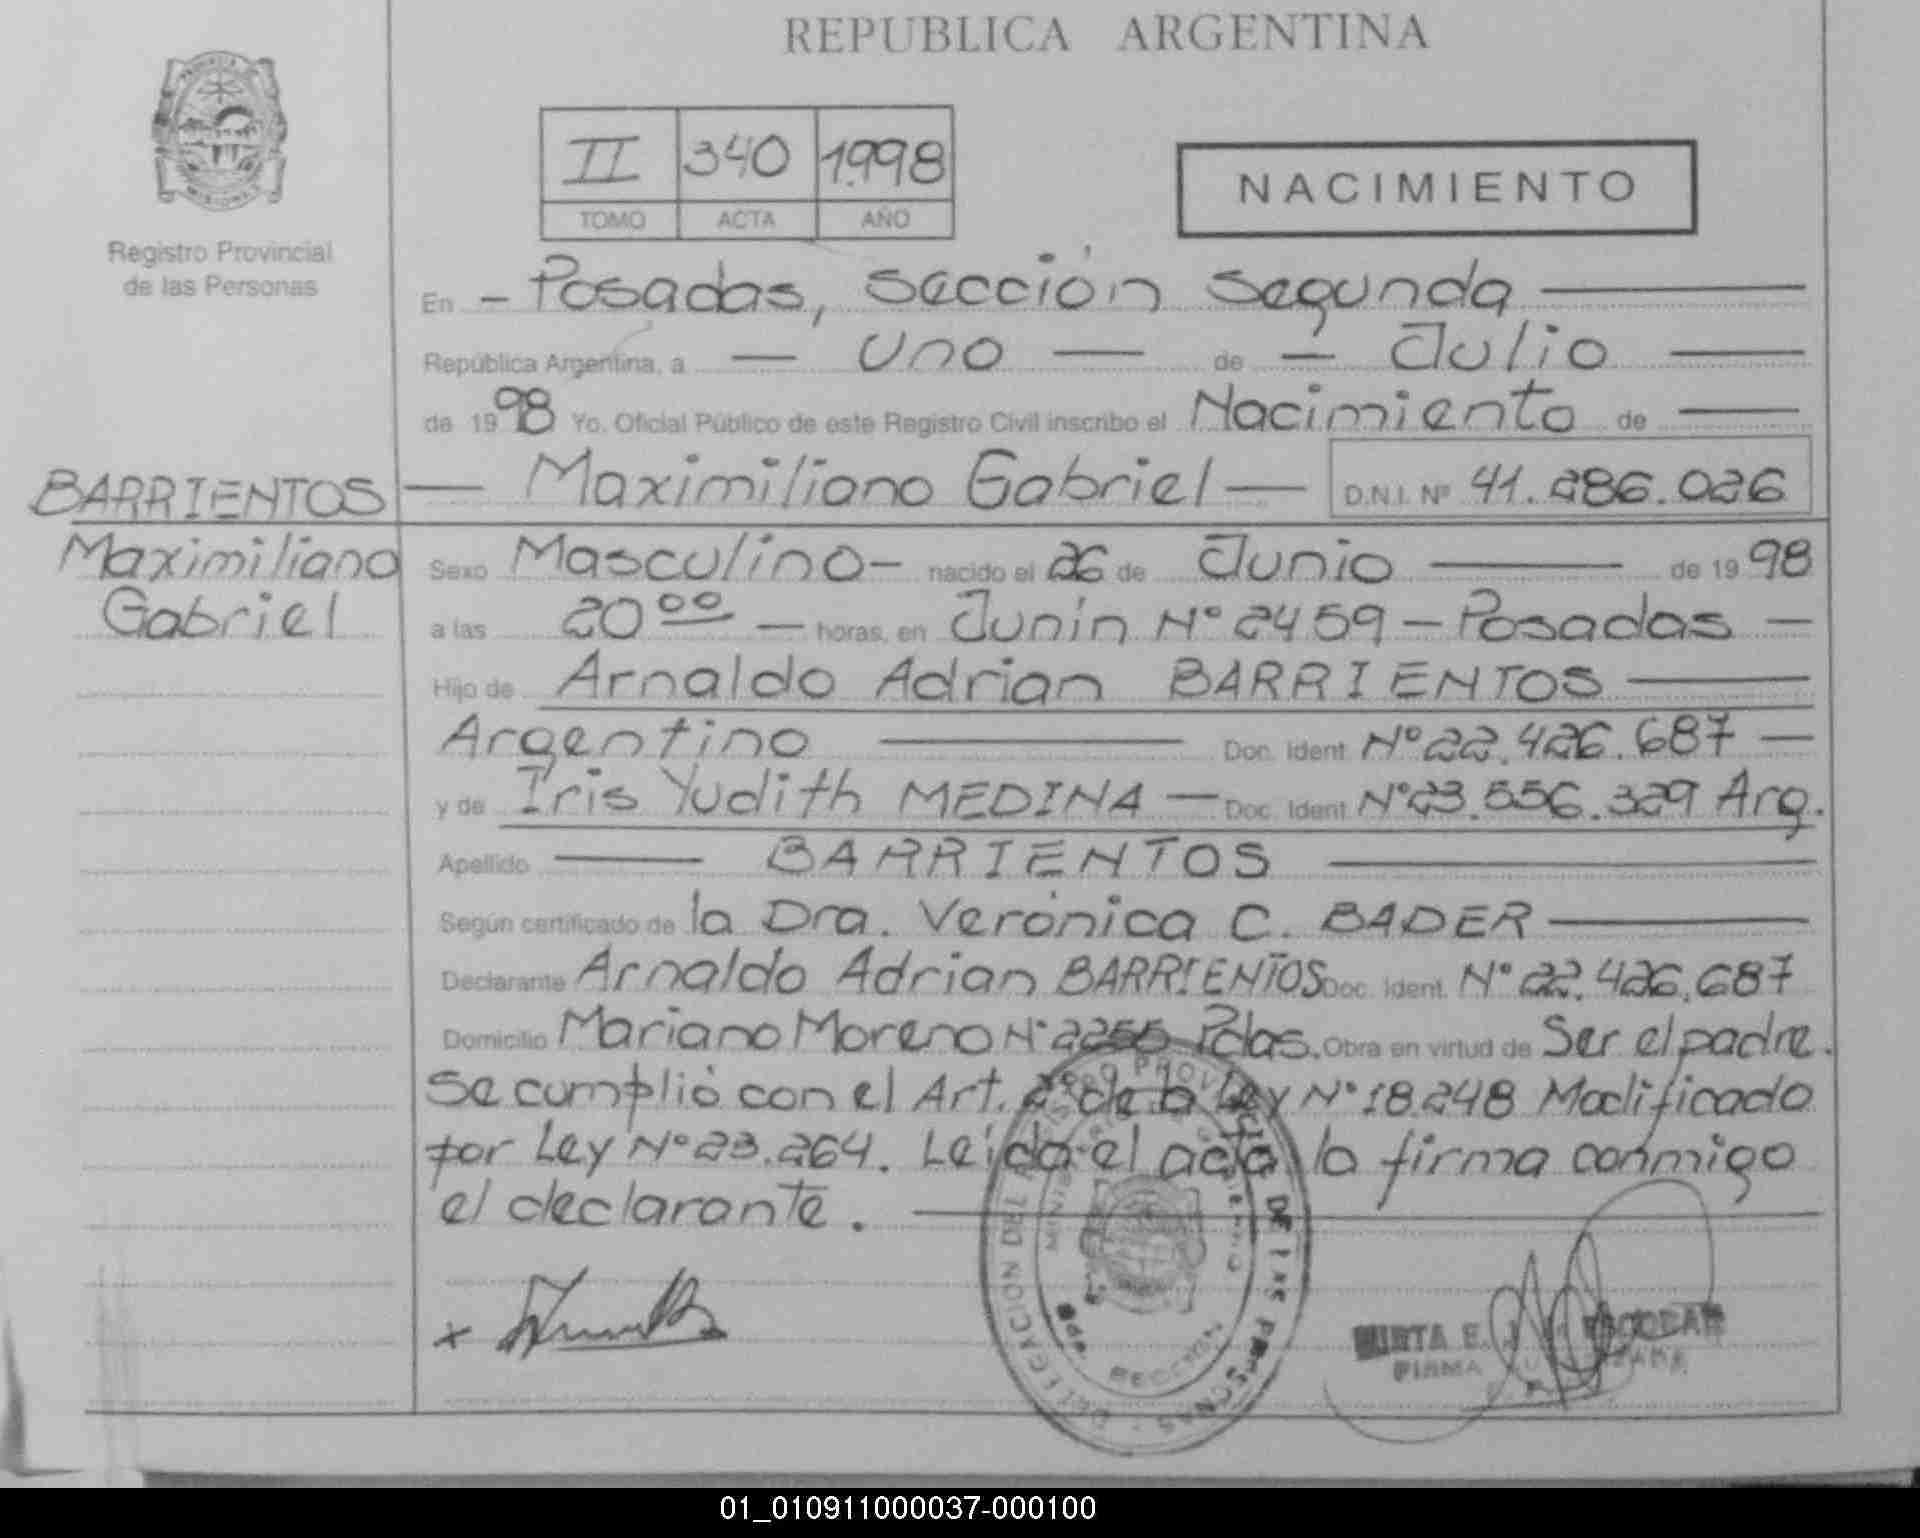 REPUBLICA ARGENTINA
PROVINCIA DE
MISIONES
Registro Provincial
de las Personas
II 340 1998
TOMO ACTA AÑO
NACIMIENTO
En - Posadas, sección segunda
República Argentina, a — uno — de — Julio
de 1998 Yo, Oficial Público de este Registro Civil inscribo el Nacimiento de
BARRIENTOS
Maximiliano
Gabriel
— Maximiliano Gabriel — D.N.I. Nº 41.286.026
Sexo Masculino - nacido el 26 de Junio de 1998
a las 20 00 — horas, en Junín Nº 2459 - Posadas —
Hijo de Arnaldo Adrian BARRIENTOS
Argentino Doc. Ident. Nº 22.426.687 —
y de Iris Yudith MEDINA — Doc. Ident. Nº 23.556.329 Arg.
Apellido BARRIENTOS
Según certificado de la Dra. Verónica C. BADER
Declarante Arnaldo Adrian BARRIENTOS Doc. Ident. Nº 22.426.687
Domicilio Mariano Moreno Nº 2255 Pdas. Obra en virtud de Ser el padre.
Se cumplió con el Art. 2º de la Ley Nº 18.248 Modificado
por Ley Nº 23.264. Leída el acta la firma conmigo
el declarante.
DELEGACION DEL REGISTRO PROVINCIAL DE LAS PERSONAS
MINISTERIO DE GOBIERNO
2da. SECCION
MIRTA E. ESCOBAR
FIRMA AUTORIZADA
01_010911000037-000100